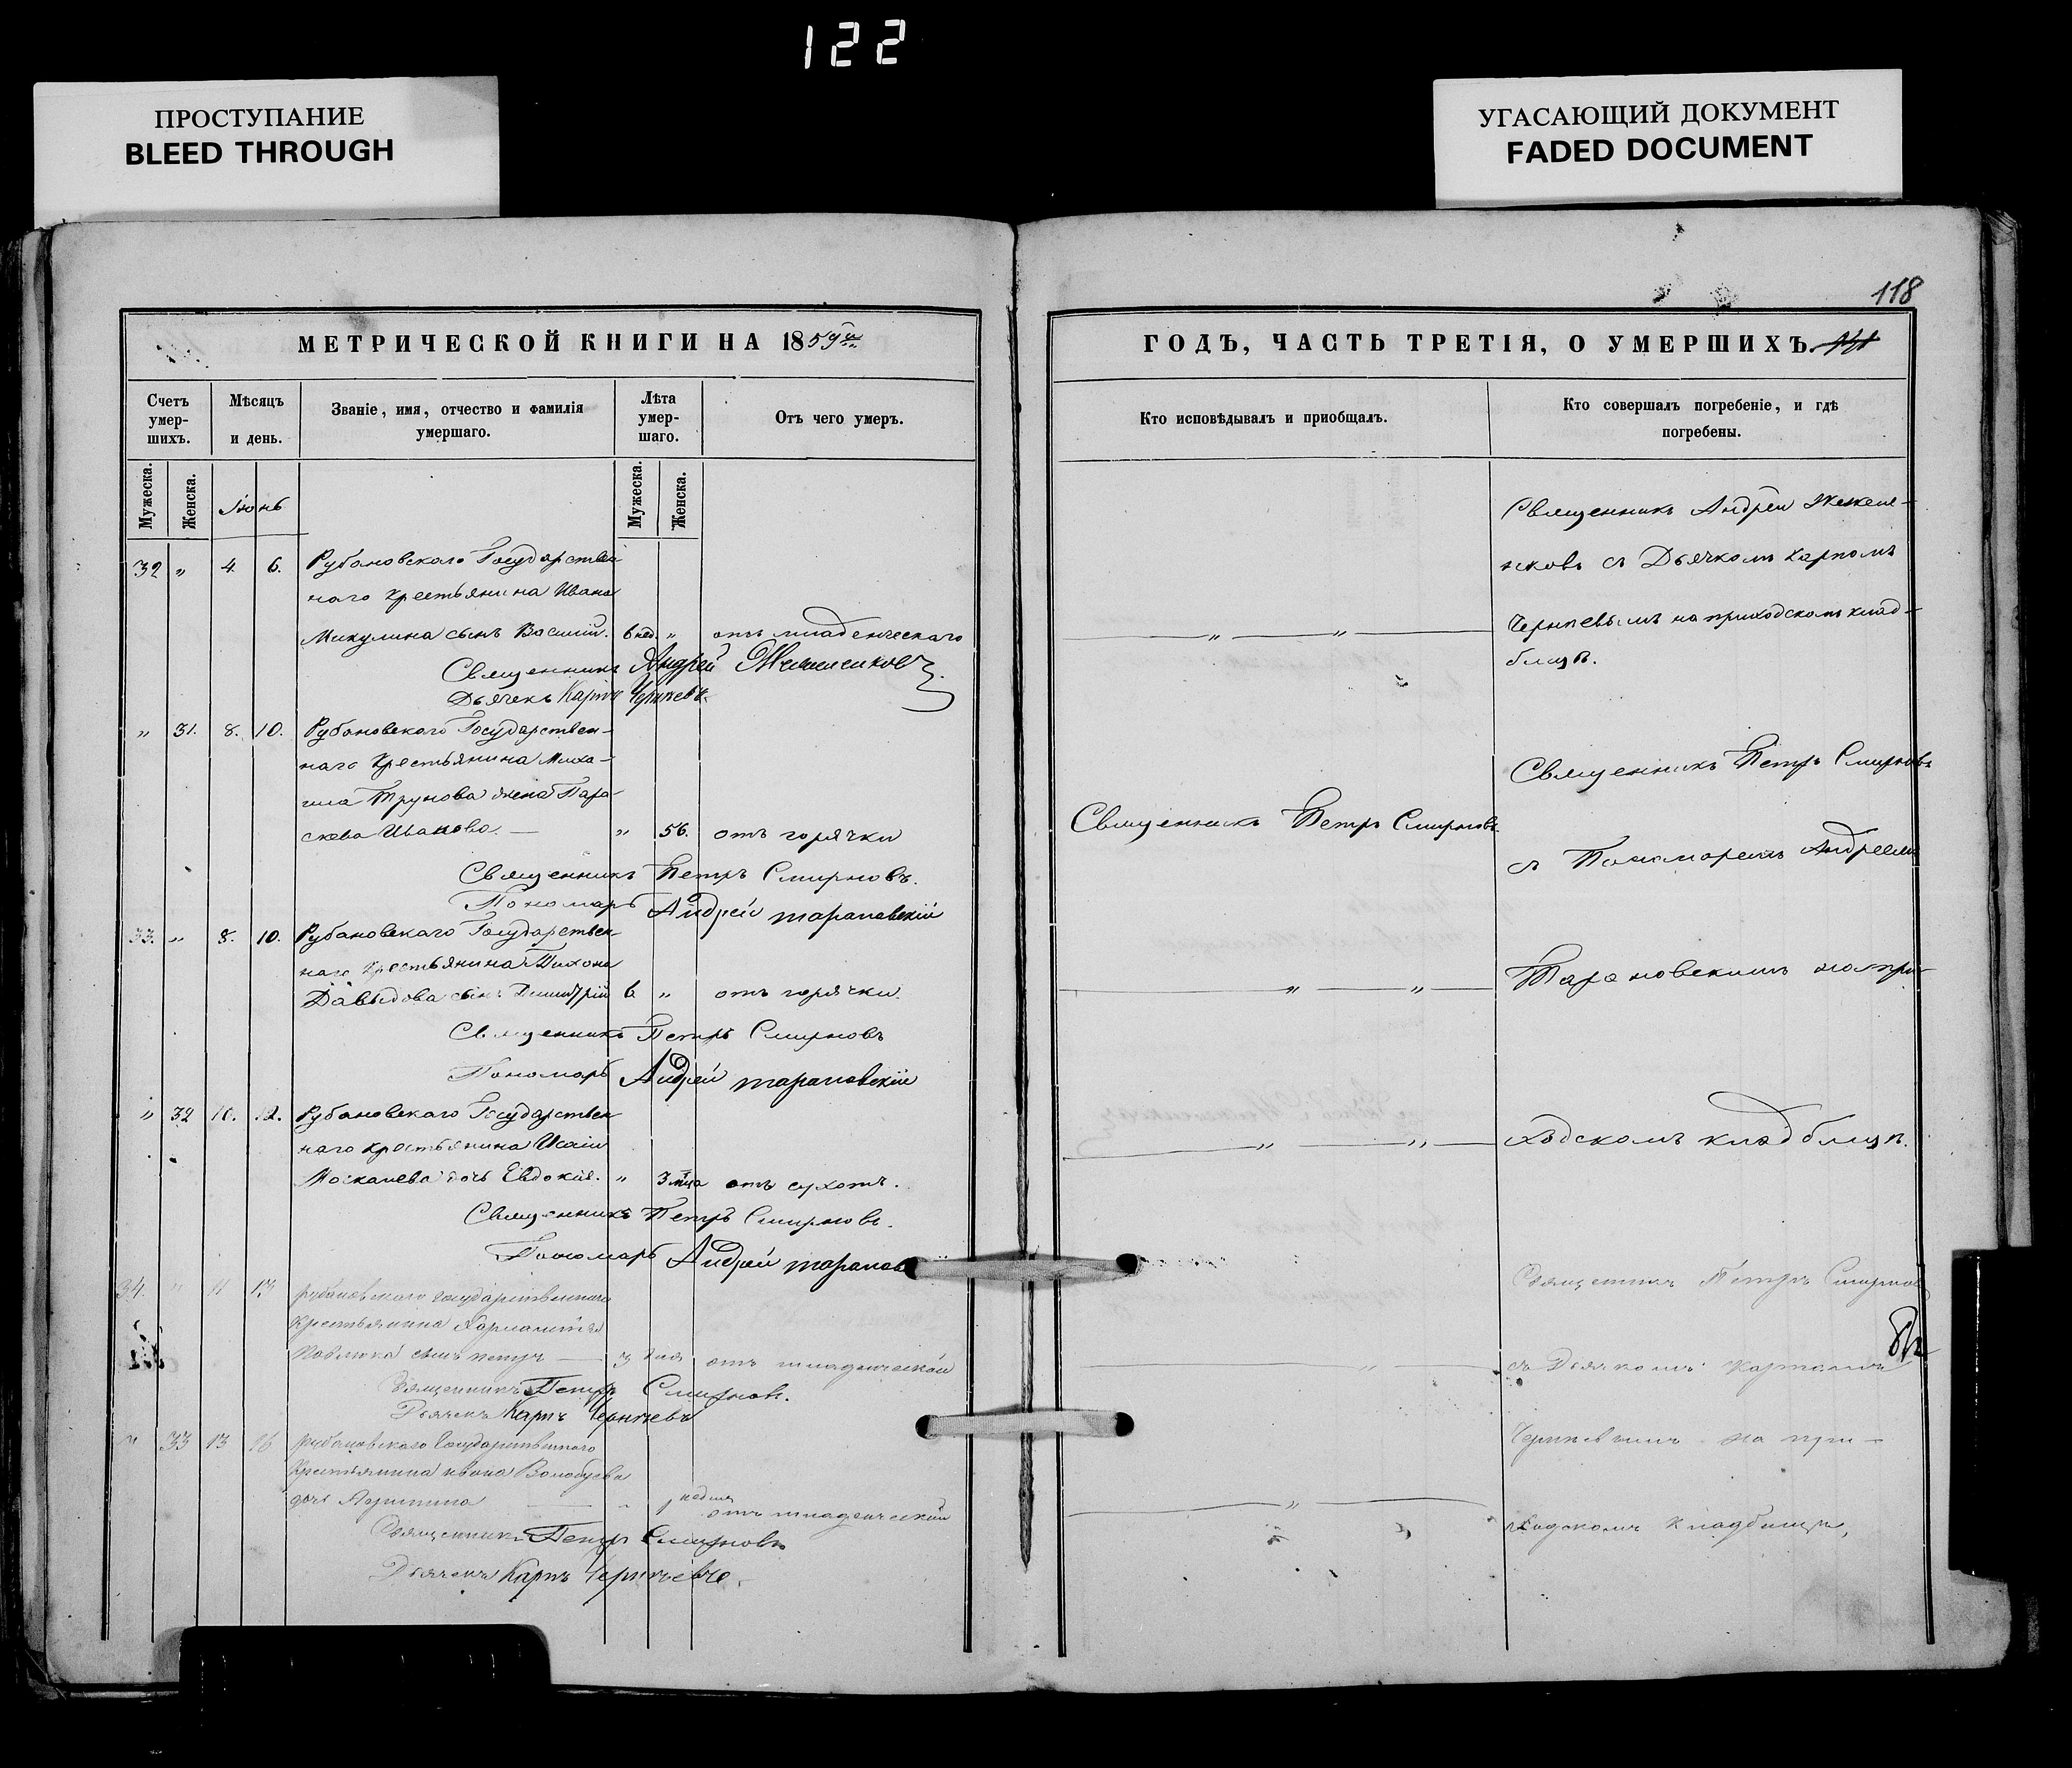 122
ПРОСТУПАНИЕ
BLEED THROUGH
УГАСАЮЩИЙ ДОКУМЕНТ
FADED DOCUMENT
118
МЕТРИЧЕСКОЙ КНИГИ НА 1859й
Счетъ умер-шихъ.
Мѣсяцъ и день.
Званіе, имя, отчество и фамилія умершаго.
Лѣта умер-шаго.
Отъ чего умеръ.
Мужеска.
Женска.
Іюнь
Мужеска.
Женска.
32 " 4 6. Рубановскаго Государствен
наго крестьянина Ивана
Микулина сынъ Василій. 6 нед. " отъ младенческаго
Священникъ Андрей
Дьячекъ Карпъ Черняевъ.
" 31. 8. 10. Рубановскаго Государствен-
наго Крестьянина Миха-
ила Трунова жена Пара-
скева Иванова. — " 56. отъ горячки
Священникъ Петръ Смирновъ.
Пономарь Андрей Тарановскій
33. " 8. 10. Рубановскаго Государствен-
наго Крестьянина Тихона
Давыдова сынъ Димитрій 6 " отъ горячки.
Священникъ Петръ Смирновъ
Пономарь Андрей Тарановскій
" 32 10. 12. Рубановскаго Государствен
наго крестьянина Исаіи
дочь Евдокія. " 3 мца отъ сухотъ.
Священникъ Петръ Смирновъ.
Пономарь Андрей Таранов
34. " 11 13 Рубановскаго Государственнаго
Крестьянина
сынъ Петръ — 3 дня отъ младенческой
Священникъ Петръ Смирновъ.
Дьячекъ Карпъ Черняевъ
" 33 13 16 Рубановскаго Государственнаго
Крестьянина Ивана Волобуева
дочь — " 1 недля
отъ младенческой
Священникъ Петръ Смирновъ
Дьячекъ Карпъ Черняевъ.
ГОДЪ, ЧАСТЬ ТРЕТІЯ, О УМЕРШИХЪ.
Кто исповѣдывалъ и приобщалъ.
Кто совершалъ погребеніе, и гдѣ погребены.
Священникъ Андрей
съ Дьячкомъ Карпомъ
" " Черняевымъ на приходскомъ клад-
бищѣ.
Священникъ Петръ Смирновъ
Священникъ Петръ Смирновъ.
съ Пономаремъ Андреемъ
" " Тарановскимъ на при-
" " ходскомъ кладбищѣ.
Священникъ Петръ Смирнов
" съ Дьячкомъ Карпомъ
Черняевымъ на при-
" ходскомъ кладбищѣ,